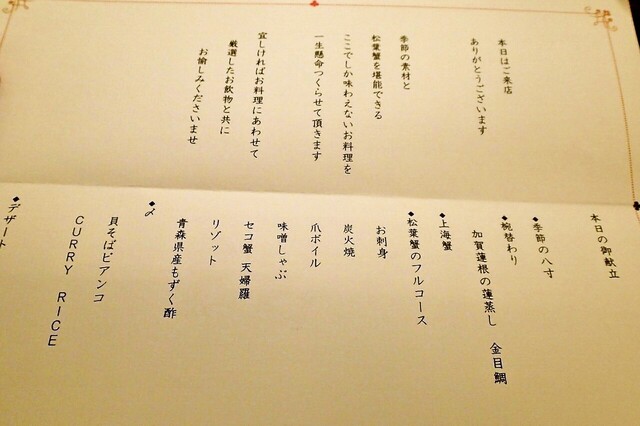 本日はご来店
ありがとうございます
季節の素材と
松葉蟹を堪能できる
ここでしか味わえないお料理を
一生懸命つくらせて頂きます
宜しければお料理にあわせて
厳選したお飲物と共に
お愉しみくださいませ
本日の御献立
◆季節の八寸
◆椀替わり
加賀蓮根の蓮蒸し 金目鯛
◆上海蟹
◆松葉蟹のフルコース
お刺身
炭火焼
爪ボイル
味噌しゃぶ
セコ蟹 天婦羅
リゾット
青森県産もずく酢
◆〆
貝そばビアンコ
CURRY RICE
◆デザート